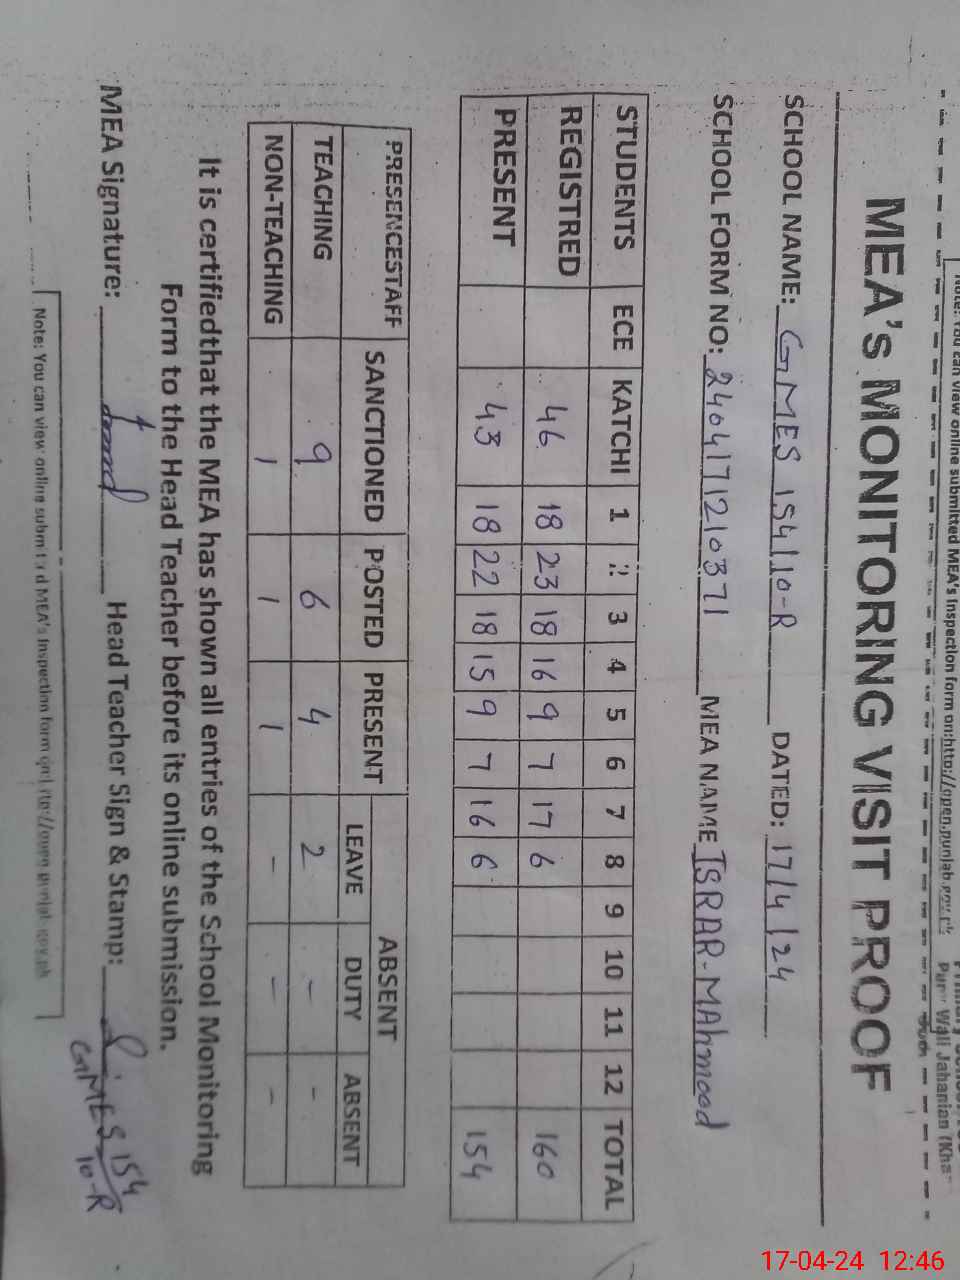 Note: You can view online submitted MEA's Inspection form on:http://open.punjab.gov.pk
Wali Jahanian
MEA's MONITORING VISIT PROOF
SCHOOL NAME: GMES 154/10-R DATED: 17/4/24
SCHOOL FORM NO: 2404171210371 MEA NAME ISRAR-MAhmood
STUDENTS ECE KATCHI 1 2 3 4 5 6 7 8 9 10 11 12 TOTAL
REGISTRED 46 18 23 18 16 9 7 17 6 160
PRESENT 43 18 22 18 15 9 7 16 6 154
PRESENCESTAFF SANCTIONED POSTED PRESENT ABSENT
LEAVE DUTY ABSENT
TEACHING 9 6 4 2 - -
NON-TEACHING 1 1 1 - - -
It is certifiedthat the MEA has shown all entries of the School Monitoring
Form to the Head Teacher before its online submission.
MEA Signature: Head Teacher Sign & Stamp:
GMES 154
10-R
Note: You can view online submitted MEA's Inspection form on:http://open.punjab.gov.pk
17-04-24 12:46